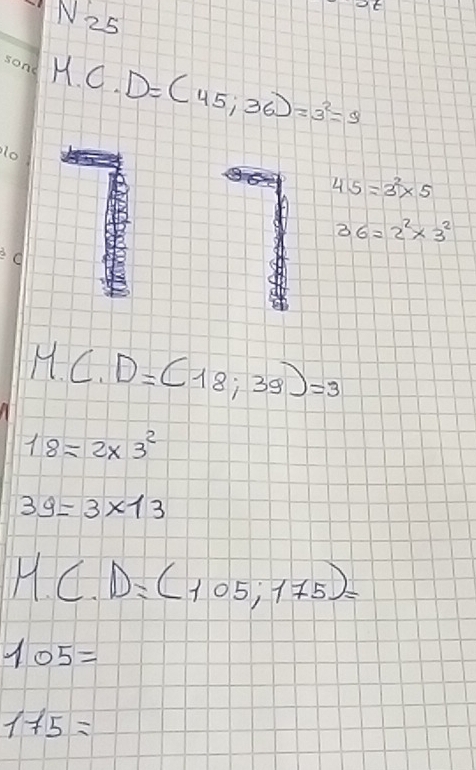 N 25
sono
M.C.D=(45;36)=3²=9
45=3²×5
36=2²×3²
M.C.D=(18;39)=3
18=2×3²
39=3×13
M.C.D=(105;175)=
105=
175=